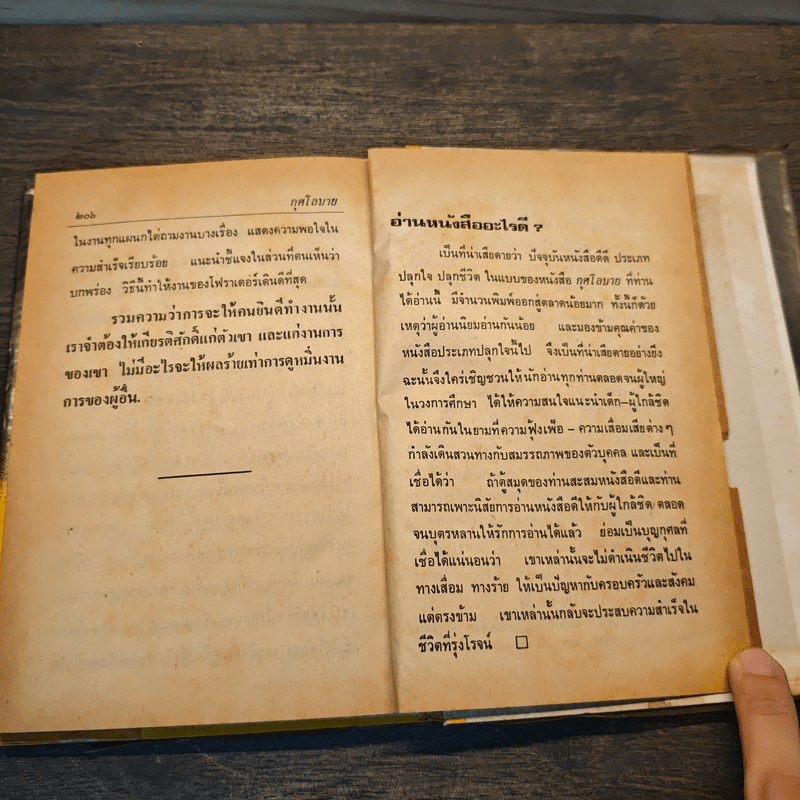 ๒๐๖ กุศโลบาย
ในงานทุกแผนกไต่ถามงานบางเรื่อง แสดงความพอใจใน
ความสำเร็จเรียบร้อย แนะนำชี้แจงในส่วนที่ตนเห็นว่า
บกพร่อง วิธีนี้ทำให้งานของโฟราเดอร์เดินดีที่สุด
รวมความว่าการจะให้คนยินดีทำงานนั้น
เราจำต้องให้เกียรติศักดิ์แก่ตัวเขา และแก่งานการ
ของเขา ไม่มีอะไรจะให้ผลร้ายเท่าการดูหมิ่นงาน
การของผู้อื่น.
อ่านหนังสืออะไรดี ?
เป็นที่น่าเสียดายว่า ปัจจุบันหนังสือดีดี ประเภท
ปลุกใจ ปลุกชีวิต ในแบบของหนังสือ กุศโลบาย ที่ท่าน
ได้อ่านนี้ มีจำนวนพิมพ์ออกสู่ตลาดน้อยมาก ทั้งนี้ก็ด้วย
เหตุว่าผู้อ่านนิยมอ่านกันน้อย และมองข้ามคุณค่าของ
หนังสือประเภทปลุกใจนี้ไป จึงเป็นที่น่าเสียดายอย่างยิ่ง
ฉะนั้นจึงใคร่เชิญชวนให้นักอ่านทุกท่านตลอดจนผู้ใหญ่
ในวงการศึกษา ได้ให้ความสนใจแนะนำเด็ก–ผู้ใกล้ชิด
ได้อ่านกันในยามที่ความฟุ้งเฟ้อ – ความเสื่อมเสียต่างๆ
กำลังเดินสวนทางกับสมรรถภาพของตัวบุคคล และเป็นที่
เชื่อได้ว่า ถ้าตู้สมุดของท่านสะสมหนังสือดีและท่าน
สามารถเพาะนิสัยการอ่านหนังสือดีให้กับผู้ใกล้ชิด ตลอด
จนบุตรหลานให้รักการอ่านได้แล้ว ย่อมเป็นบุญกุศลที่
เชื่อได้แน่นอนว่า เขาเหล่านั้นจะไม่ดำเนินชีวิตไปใน
ทางเสื่อม ทางร้าย ให้เป็นปัญหากับครอบครัวและสังคม
แต่ตรงข้าม เขาเหล่านั้นกลับจะประสบความสำเร็จใน
ชีวิตที่รุ่งโรจน์ □